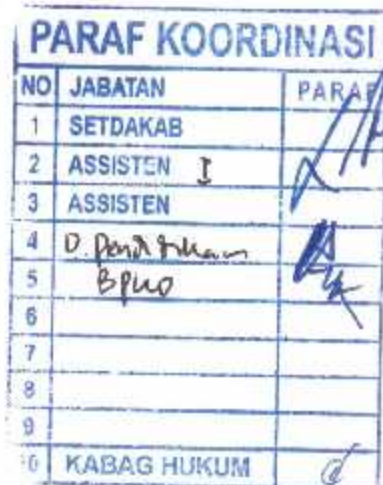 PARAF KOORDINASI
NO JABATAN PARAF
1 SETDAKAB
2 ASSISTEN I
3 ASSISTEN
4 D.
5
6
7
8
9
10 KABAG HUKUM